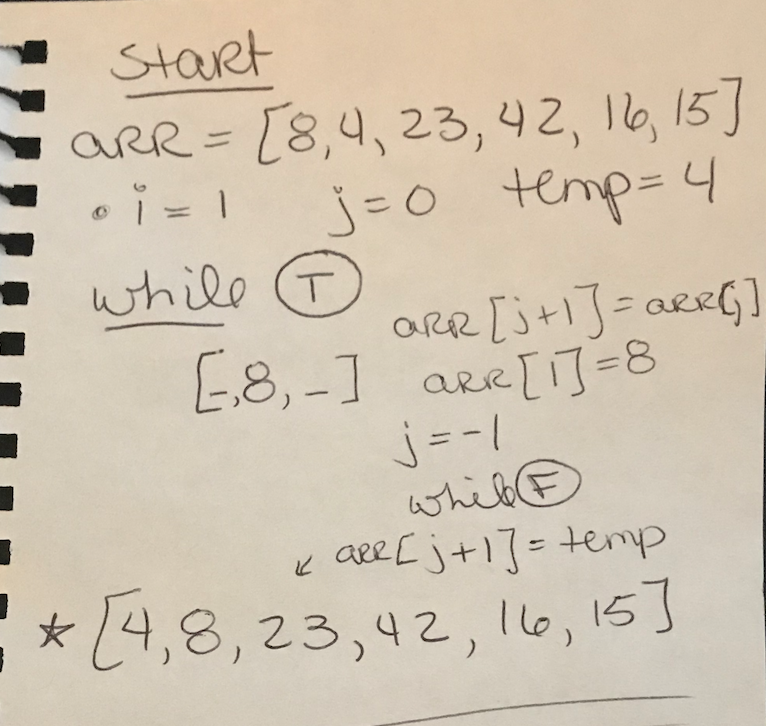 Start
aRR = [8,4, 23, 42, 16, 15]
• i = 1 j = 0 temp = 4
while T
aRR [j+1] = aRR[j]
[-,8, -] aRR [1] = 8
j = -1
while F
↙ aRR[j+1] = temp
★ [4, 8, 23, 42, 16, 15]